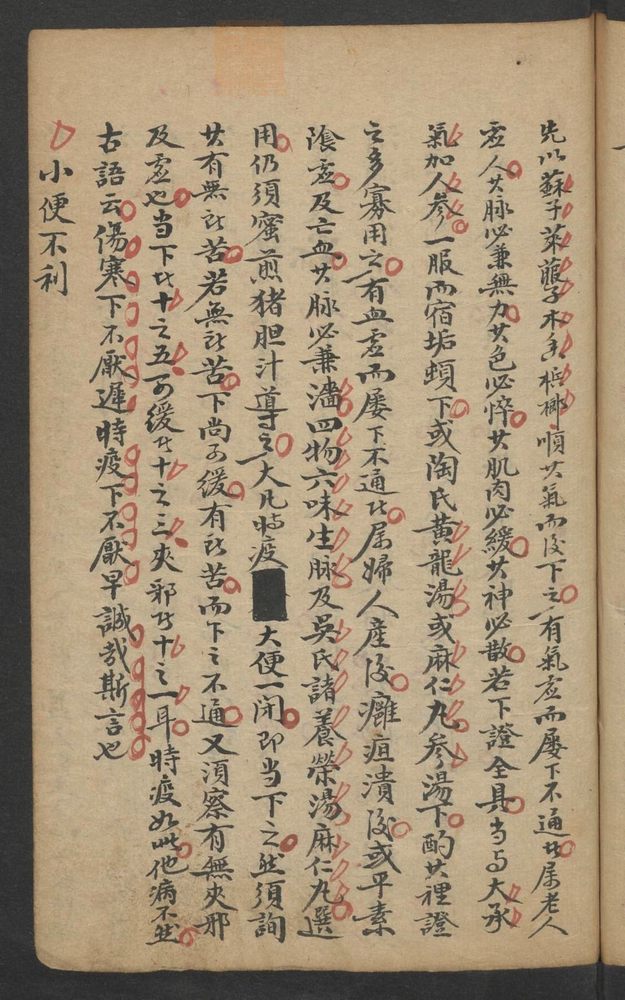 先以蘇子萊菔子木香梹榔順其氣而後下之有氣虛而屢下不通此属老人
虛人其脉必兼無力其色必悴其肌肉必緩其神必散若下證全具当与大承
氣加人參一服而宿垢頓下或陶氏黄龍湯或麻仁丸參湯下酌其裡證
之多寡用之有血虛而屢下不通此属婦人産後癰疽潰後或平素
陰虛及亡血其脉必兼濇四物六味生脉及吳氏諸養榮湯麻仁丸選
用仍須蜜煎猪胆汁導之大凡時疫 大便一闭即当下之然須詢
其有無所苦若無所苦下尚可緩有所苦而下之不通又須察有無夾邪
及虛也当下此十之五可緩此十之三夾邪此十之一耳時疫如此他病不然
古語云傷寒下不厭遲時疫下不厭早誠哉斯言也
小便不利